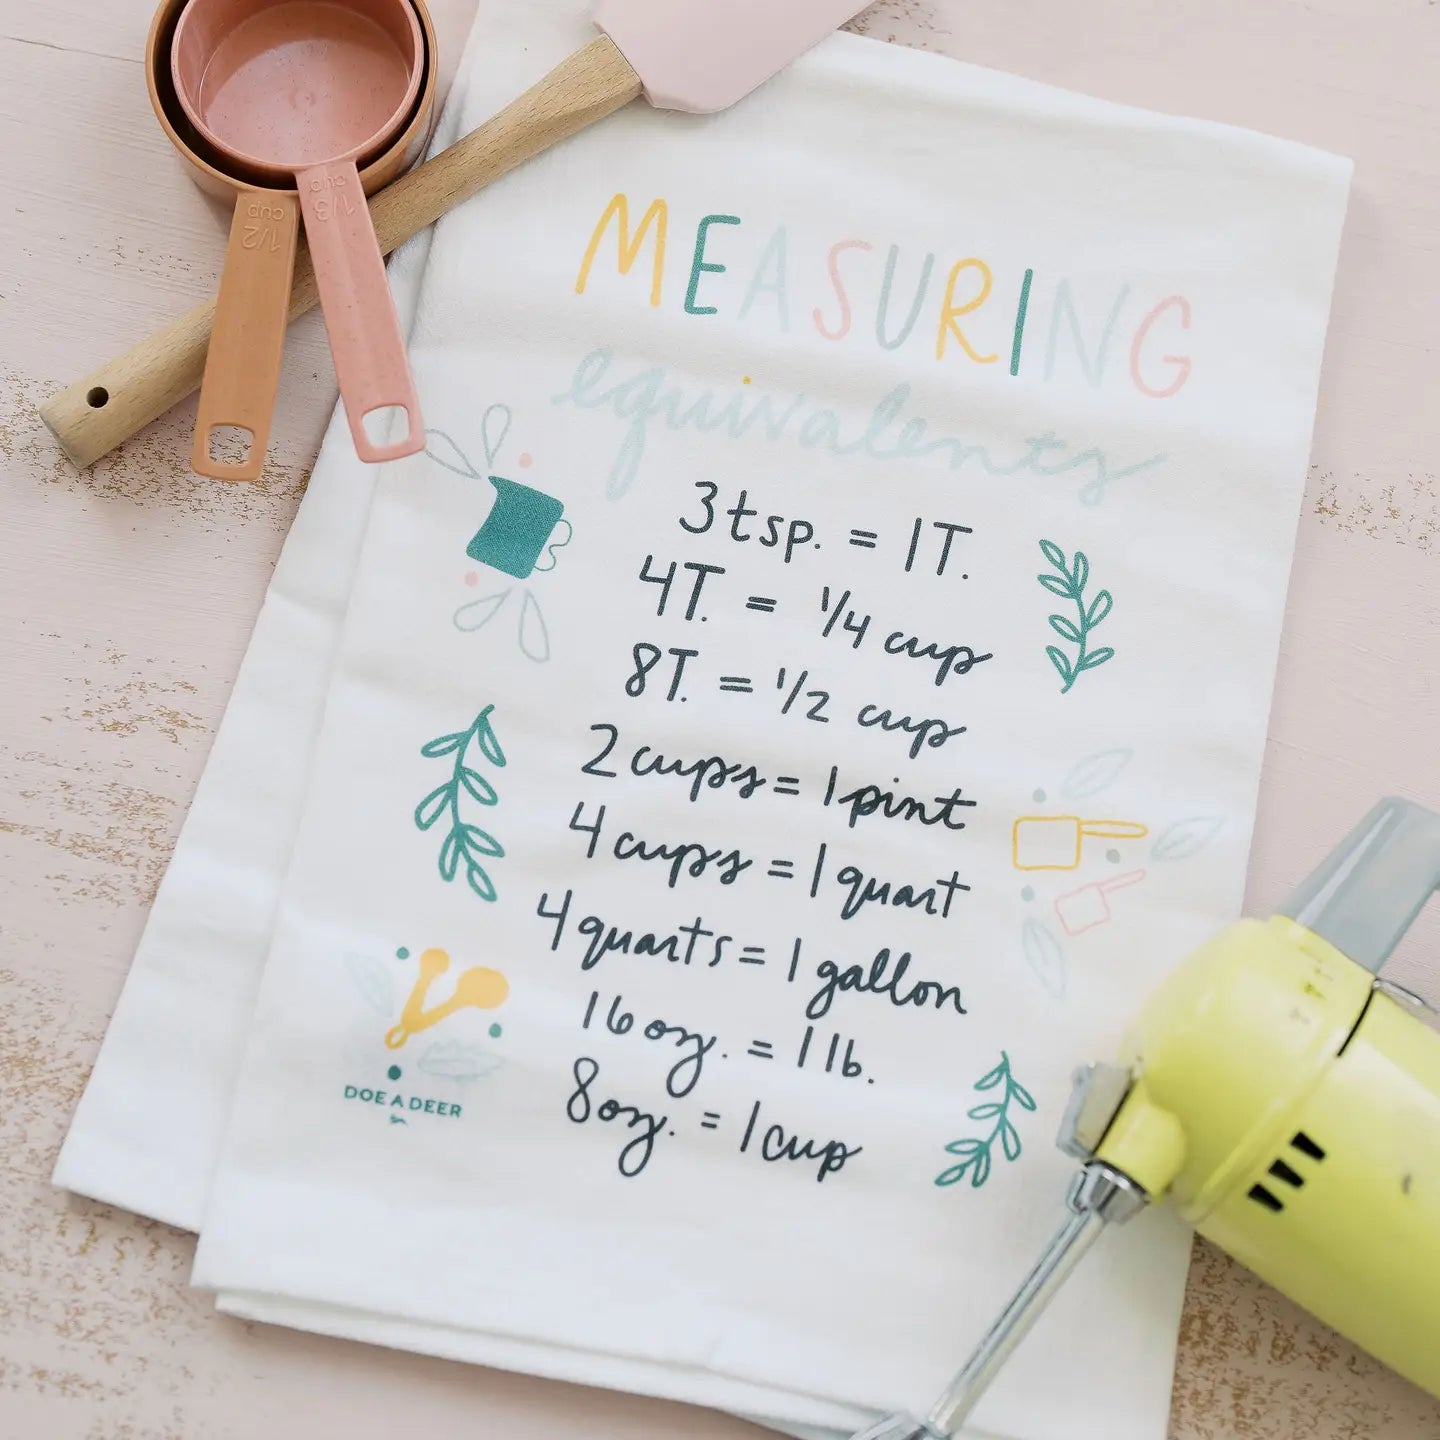 1/2 cup
1/3 cup
MEASURING
equivalents
3 tsp. = 1 T.
4 T. = 1/4 cup
8 T. = 1/2 cup
2 cups = 1 pint
4 cups = 1 quart
4 quarts = 1 gallon
16 oz. = 1 lb.
8 oz. = 1 cup
DOE A DEER